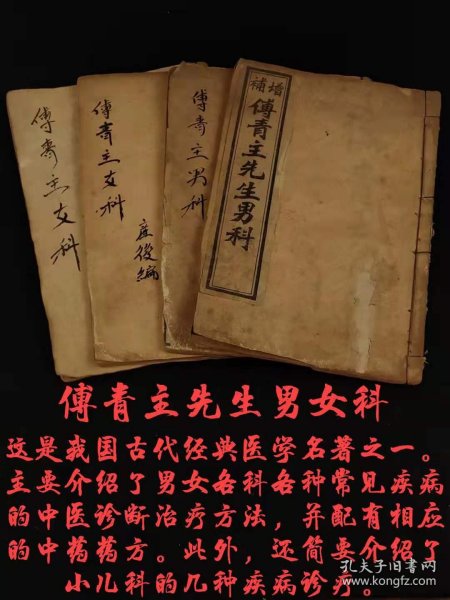 增補
傅青主先生男科
傅青主男科
傅青主女科
產後編
傅青主女科
傅青主先生男女科
这是我国古代经典医学名著之一。
主要介绍了男女各科各种常见疾病
的中医诊断治疗方法，并配有相应
的中药药方。此外，还简要介绍了
小儿科的几种疾病诊疗。
孔夫子旧书网
www.kongfz.com